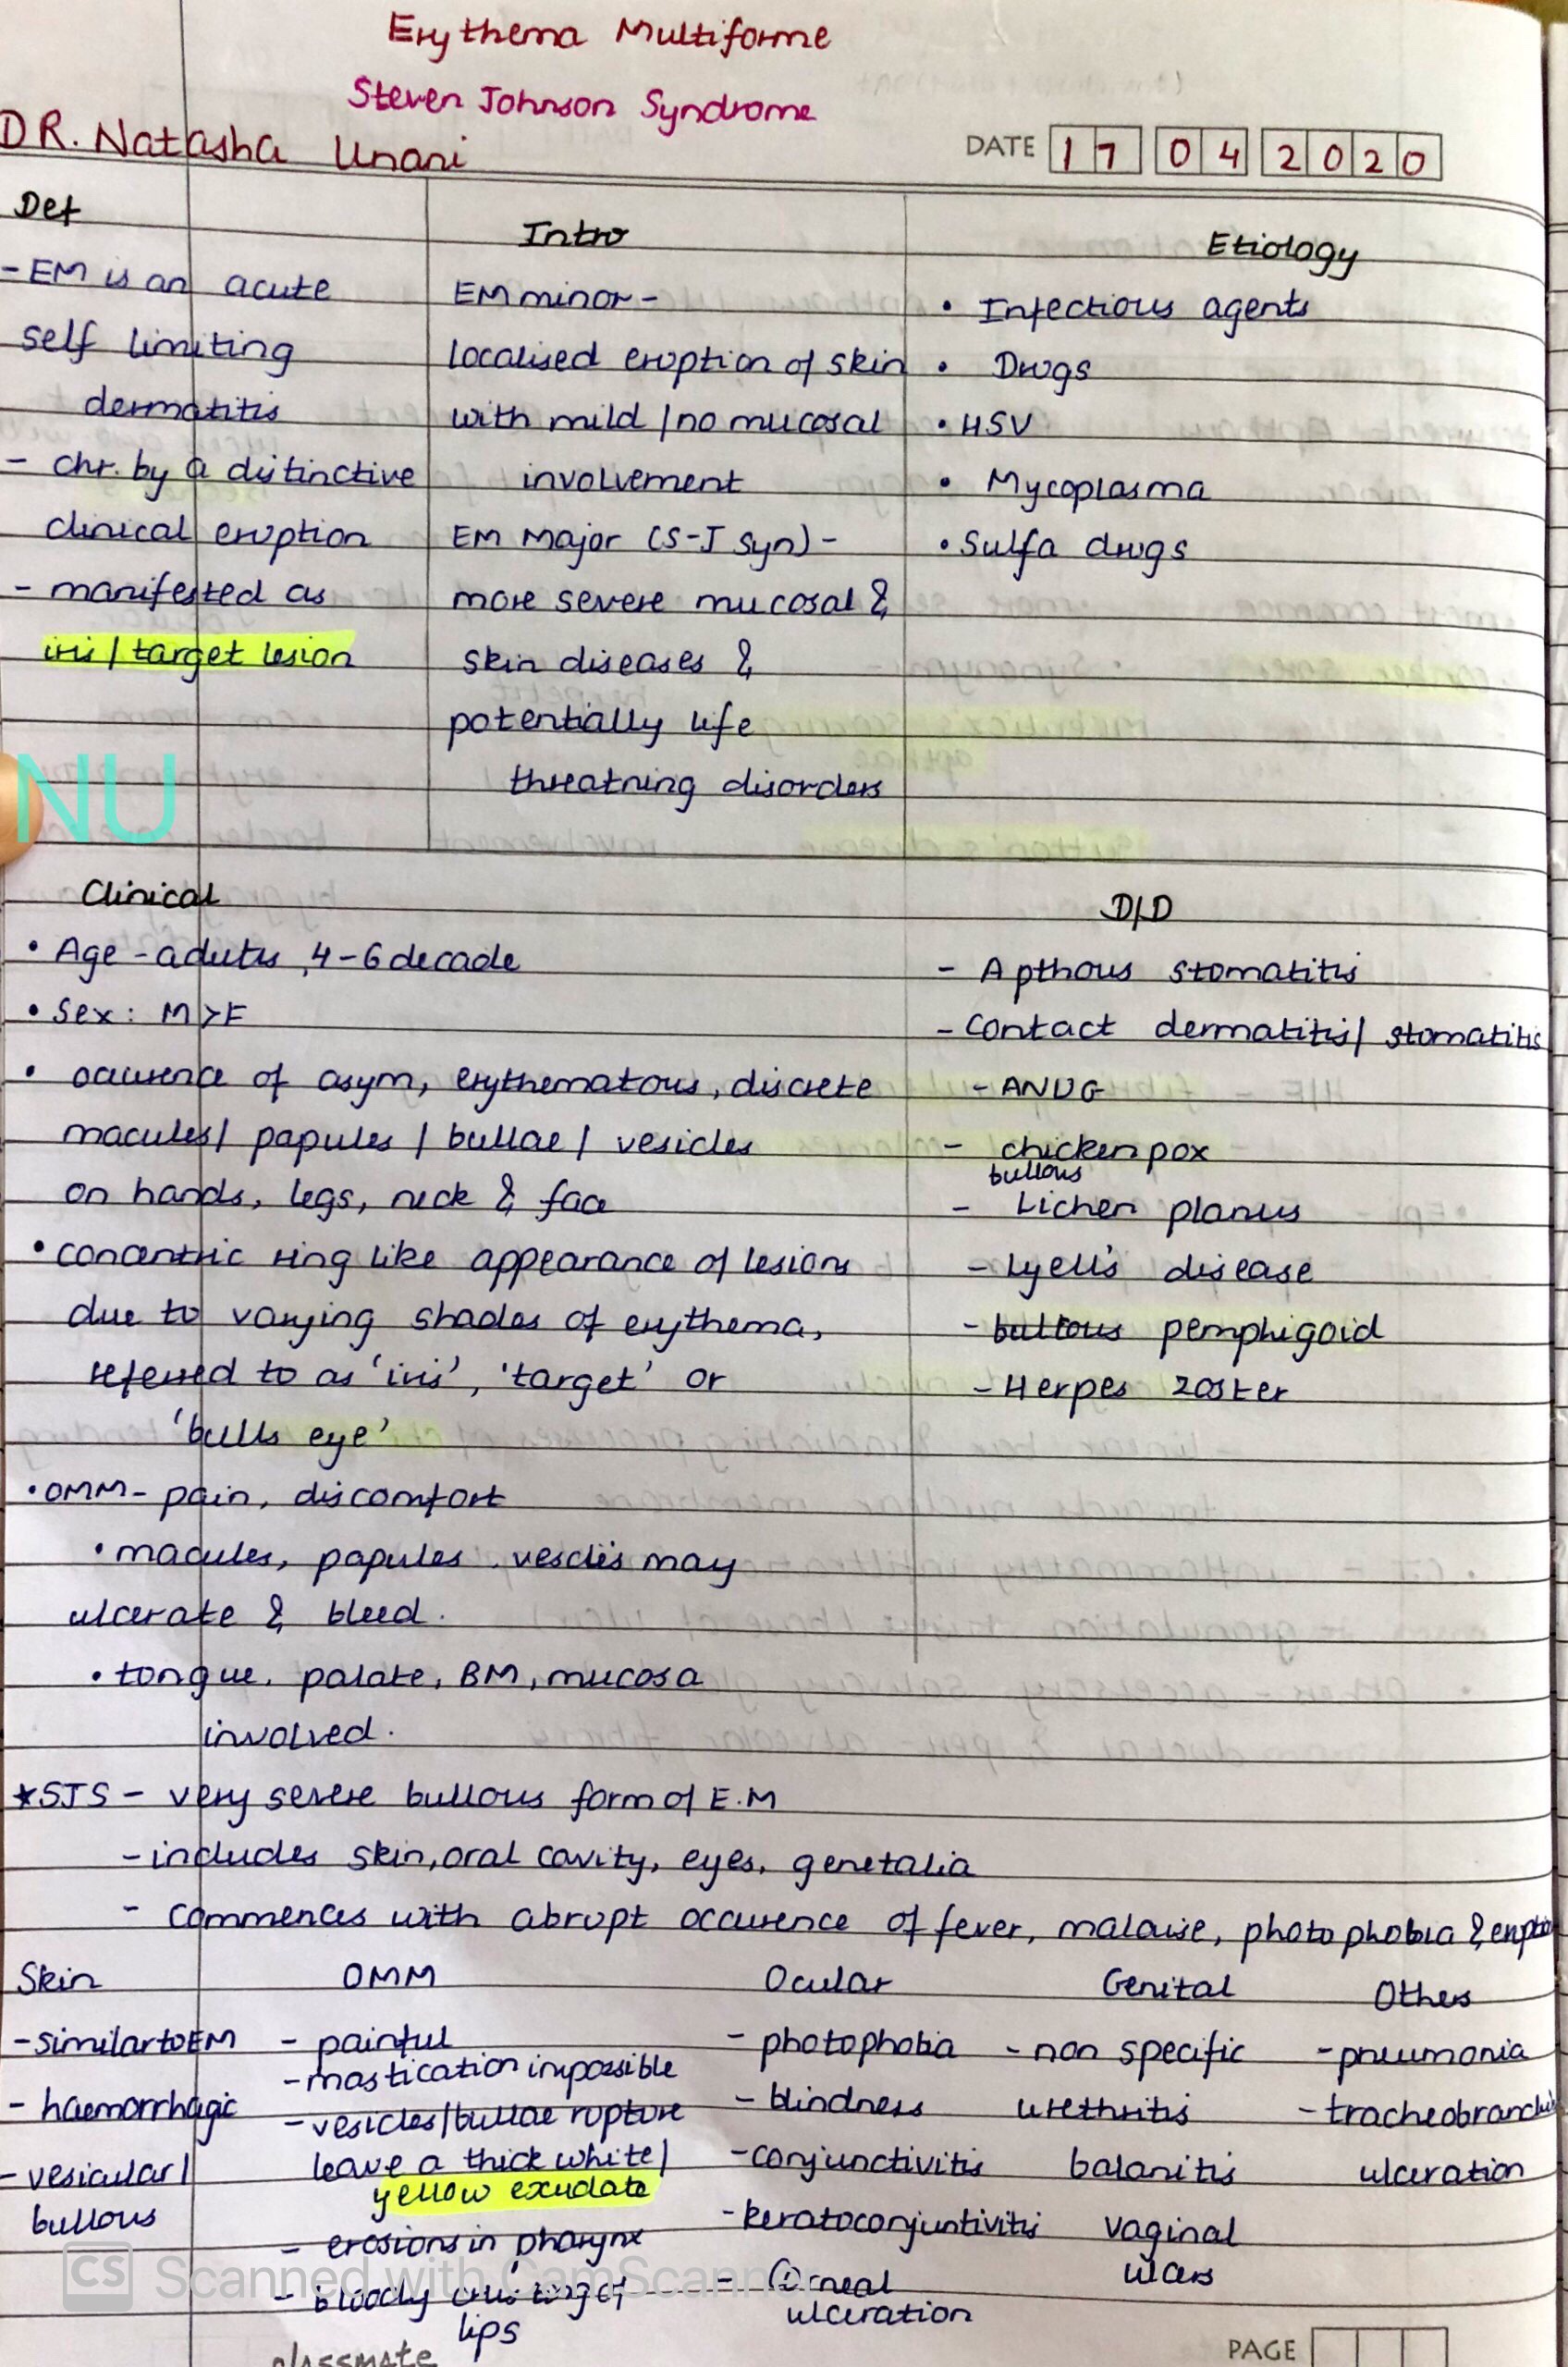 Erythema Multiforme
Steven Johnson Syndrome
DR. Natasha Unani
DATE 17 04 2020
Def
- EM is an acute
self limiting
dermatitis
- chr. by a distinctive
clinical eruption
- manifested as
iris / target lesion
Intro
EM minor -
localised eruption of skin
with mild / no mucosal
involvement
EM Major (S-J Syn) -
more severe mucosal &
skin diseases &
potentially life
threatning disorders
Etiology
• Infectious agents
• Drugs
• HSV
• Mycoplasma
• Sulfa drugs
NU
Clinical
• Age - adults, 4-6 decade
• Sex: M>F
• occurence of asym, erythematous, discrete
macules/ papules / bullae / vesicles
on hands, legs, neck & face
• concentric ring like appearance of lesions
due to varying shades of erythema,
referred to as 'iris', 'target' or
'bulls eye'
• OMM - pain, discomfort
• macules, papules, vescles may
ulcerate & bleed.
• tongue, palate, BM, mucosa
involved.
D/D
- Apthous stomatitis
- Contact dermatitis/ stomatitis
- ANUG
- chicken pox
bullous
- Lichen planus
- Lyell's disease
- bullous pemphigoid
- Herpes zoster
*SJS - very severe bullous form of E.M
- includes skin, oral cavity, eyes, genetalia
- Commences with abrupt occurence of fever, malaise, photophobia &
Skin
- similar to EM
- haemorrhagic
- vesicular/
bullous
OMM
- painful
- mastication impossible
- vesicles/bullae rupture
leave a thick white/
yellow exudate
- erosions in pharynx
- bloody of
lips
Ocular
- photophobia
- blindness
- conjunctivitis
- keratoconjuntivitis
- Corneal
ulceration
Genital
- non specific
urethritis
balanitis
vaginal
ulcers
Others
- pneumonia
-
ulceration
CS Scanned with CamScanner
classmate
PAGE